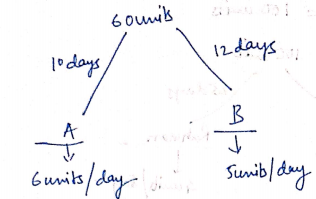 60units
10days
12days
A
B
6units/day
5units/day